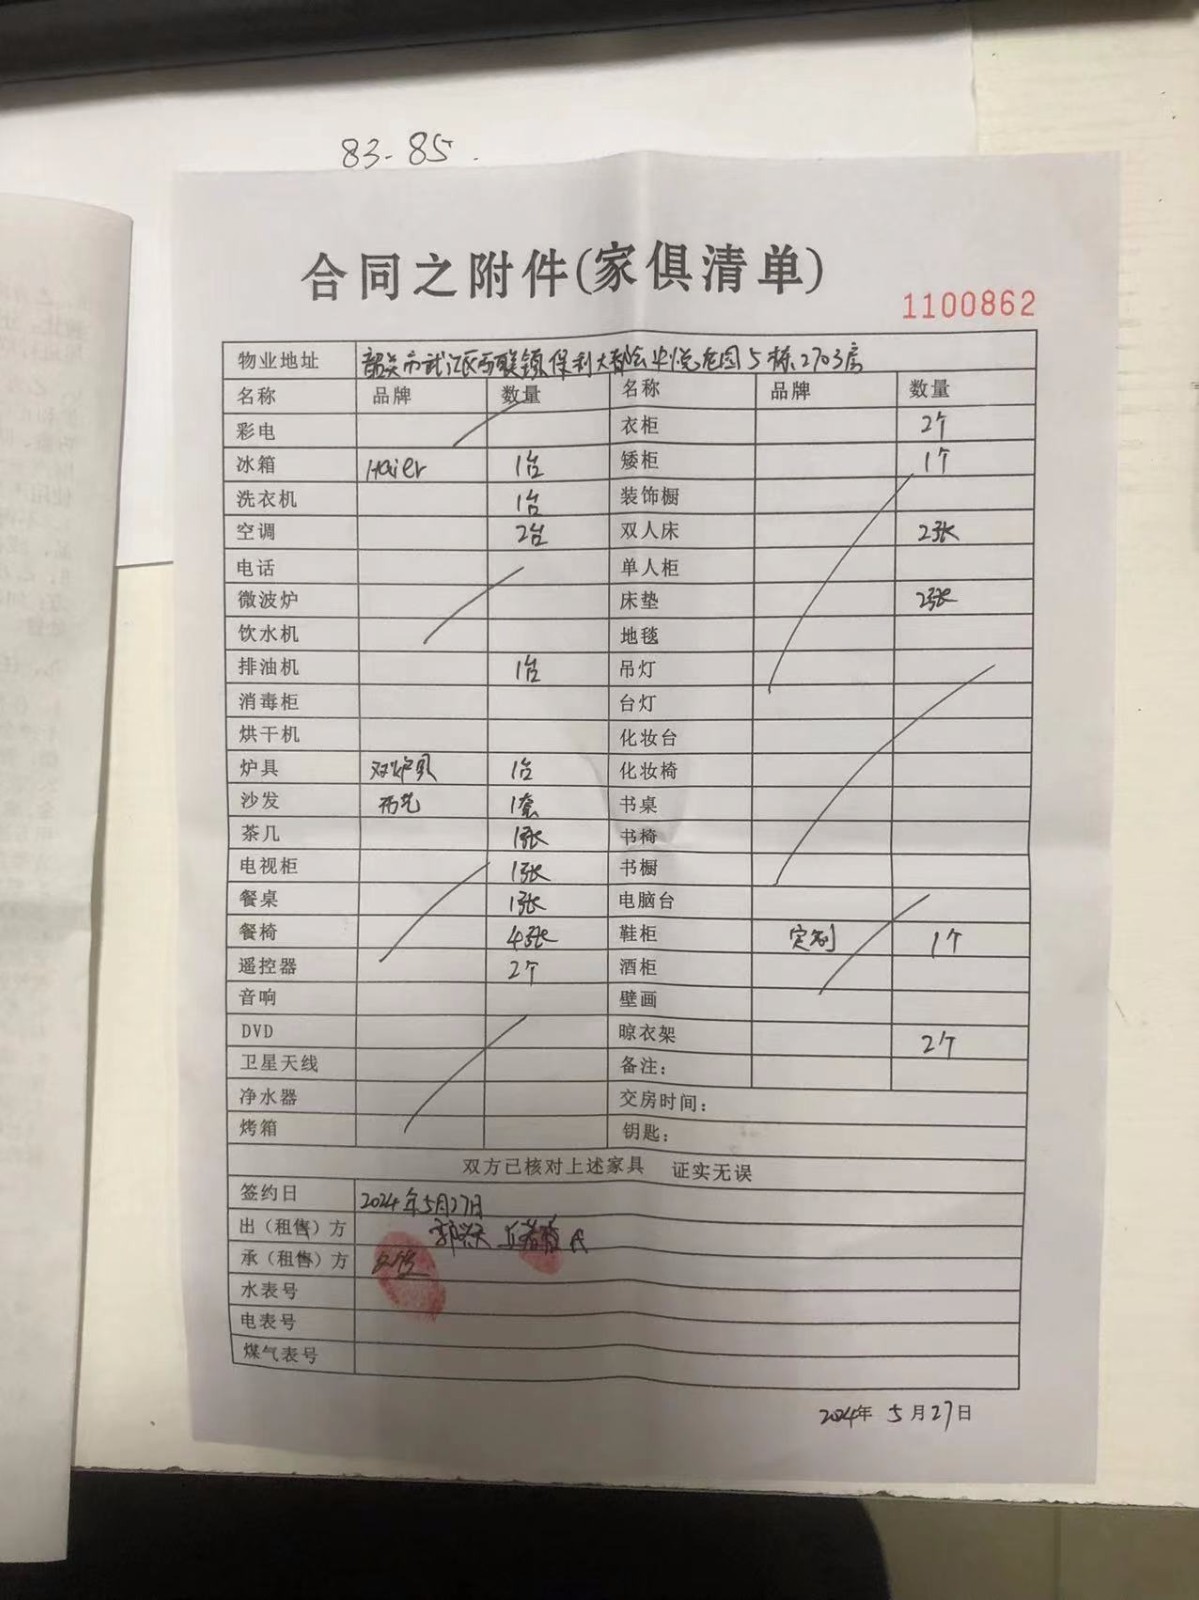 83-85.
合同之附件(家俱清单)
1100862
物业地址 韶关市武江区西联镇保利大都会华悦花园5栋2703房
名称 品牌 数量 名称 品牌 数量
彩电 衣柜 2个
冰箱 Haier 1台 矮柜 1个
洗衣机 1台 装饰橱
空调 2台 双人床 2张
电话 单人柜
微波炉 床垫 2张
饮水机 地毯
排油机 1台 吊灯
消毒柜 台灯
烘干机 化妆台
炉具 双炉具 1台 化妆椅
沙发 布艺 1套 书桌
茶几 1张 书椅
电视柜 1张 书橱
餐桌 1张 电脑台
餐椅 4张 鞋柜 定制 1个
遥控器 2个 酒柜
音响 壁画
DVD 晾衣架 2个
卫星天线 备注：
净水器 交房时间：
烤箱 钥匙：
双方已核对上述家具 证实无误
签约日 2024年5月27日
出（租售）方
承（租售）方
水表号
电表号
煤气表号
2024年 5月27日